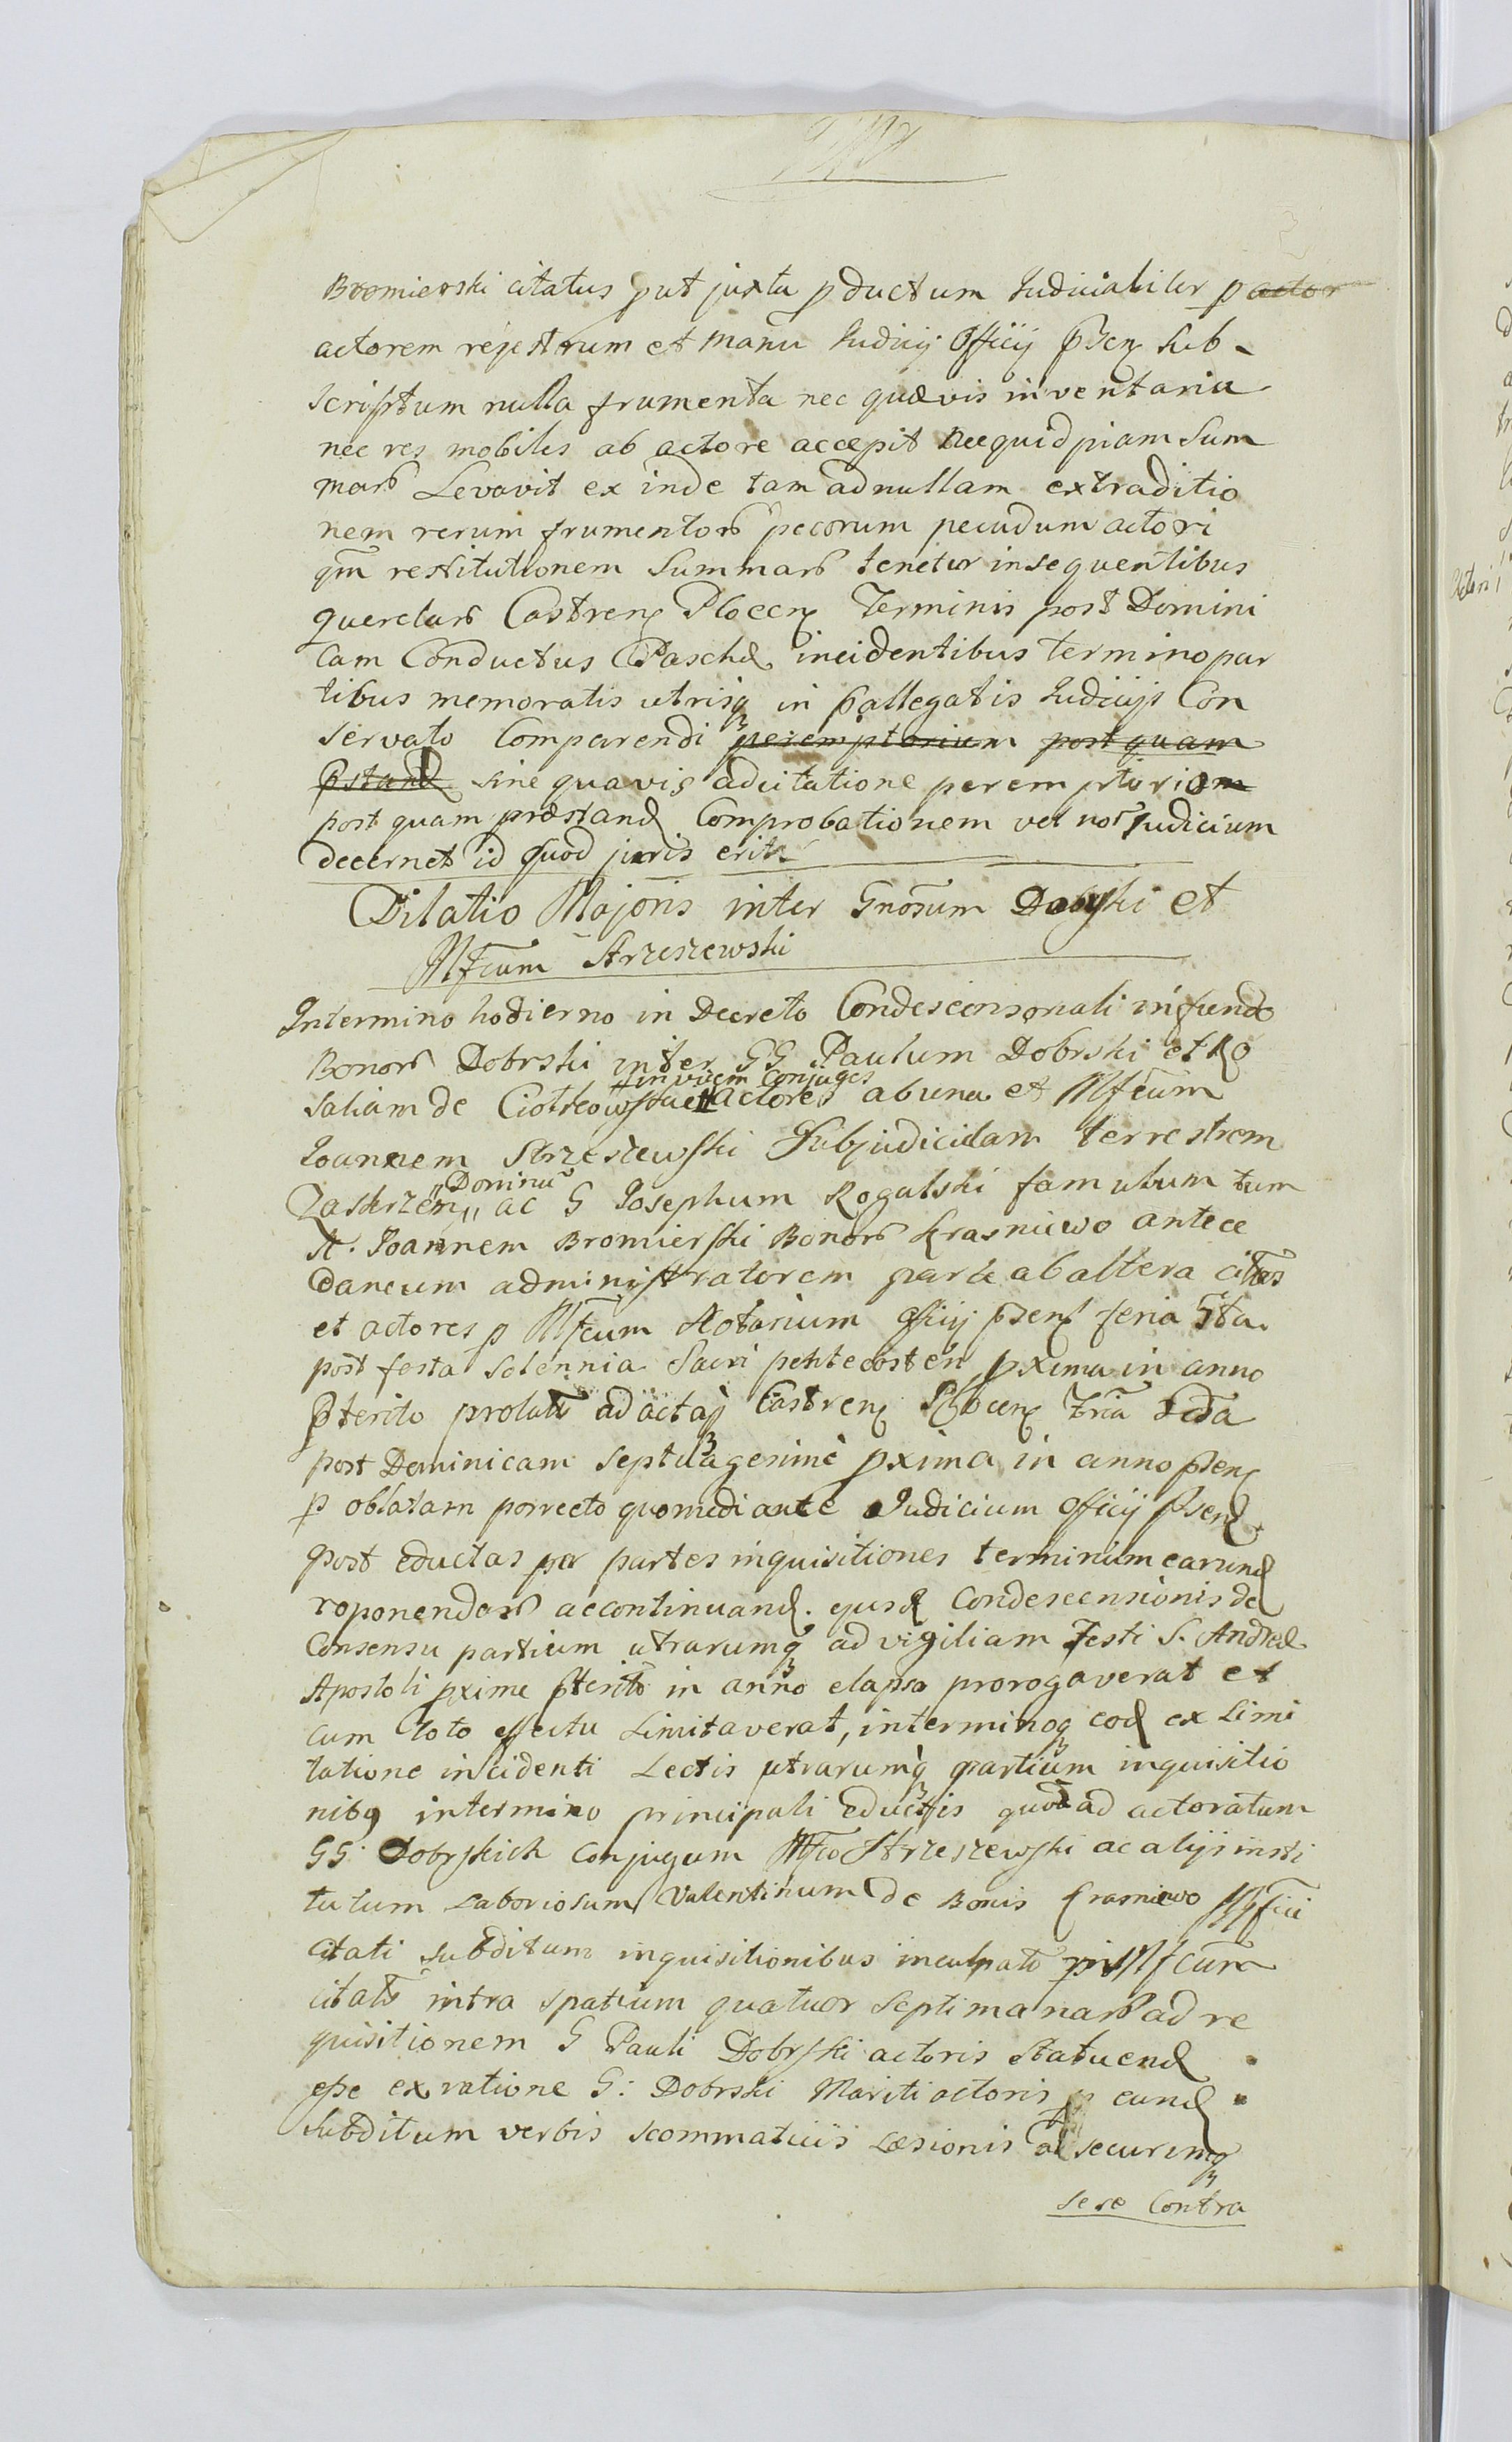 Bromierski citatus put juxta pductum Judicialiter p actor
actorem rejestrum et manu Judicij Officij psen Sub-
scriptum nulla frumenta nec quævis inventaria
nec res mobiles ab actore accepit necquidpiam Sum
mar Levavit ex inde tam ad nullam extraditio
nem rerum frumentor pecorum pecudum actori
qm restitutionem Summar tenetur insequentibus
querelar Castren Plocen Terminis post Domini
cam Conductus Paschæ incidentibus termino par
tibus memoratis utrisq in pallegatis Judicijs Con
servato Comparendi peremptorium postquam
pstand sine quavis adcitatione peremptoriom
post quam præstand Comprobationem vel non Judicium
decernet id quod juris erit
Dilatio Majoris inter Gnosum Dobrski et
Mfcum Strzeszewski
In termino hodierno in Decreto Condescensonali in fundo
Bonor Dobrski inter GG Paulum Dobrski et Ro
saliam de Ciotkowskie actores ab una et Mfcum
in vicem Conjuges
Joannem Strzeszewski Subjudicidam terrestrem
Zaskrzen ac G Josephum Rogalski famulum tum
Dominu
N. Joannem Bromierski Bonor Krasniewo antece
daneum administratorem parte ab altera citatos
et actores p Mfcum Notarium officij psen feria 5ta
post festa Solennia Sacri pentecosten pxima in anno
pterito prolat ad actaq Castren Plocen Fria 2da
post Dominicam Septuagesime pxima in anno psen
p oblatam porrecto quomediante Judicium officij psen
post eductas per partes inquisitiones terminum earund
roponendar ac continuand. ejusd Condescensionis de
Consensu partium utrarumq ad vigiliam Festi S. Andreæ
Apostoli pxime pterito in anno elapso prorogaverat et
cum toto effectu Limitaverat, in terminoq eod ex Limi
tatione incidenti Lectis utrarumq partium inquisitio
nibq in termino principali eductis quod ad actoratum
GG Dobrskich Conjugum Mfco Strzeszewski ac alijs insti
tutum Laboriosum Valentinum de Bonis Krasniewo Mfici
citati subditum inquisitionibus inculpato p Mfcum
citat intra spatium quatuor septimanar ad re
quisitionem G Pauli Dobrski actoris statuend
esse ex ratione G: Dobrski Mariti actoris p eund
Subditum verbis scommaticis Læsionis ad securumq
sese Contra